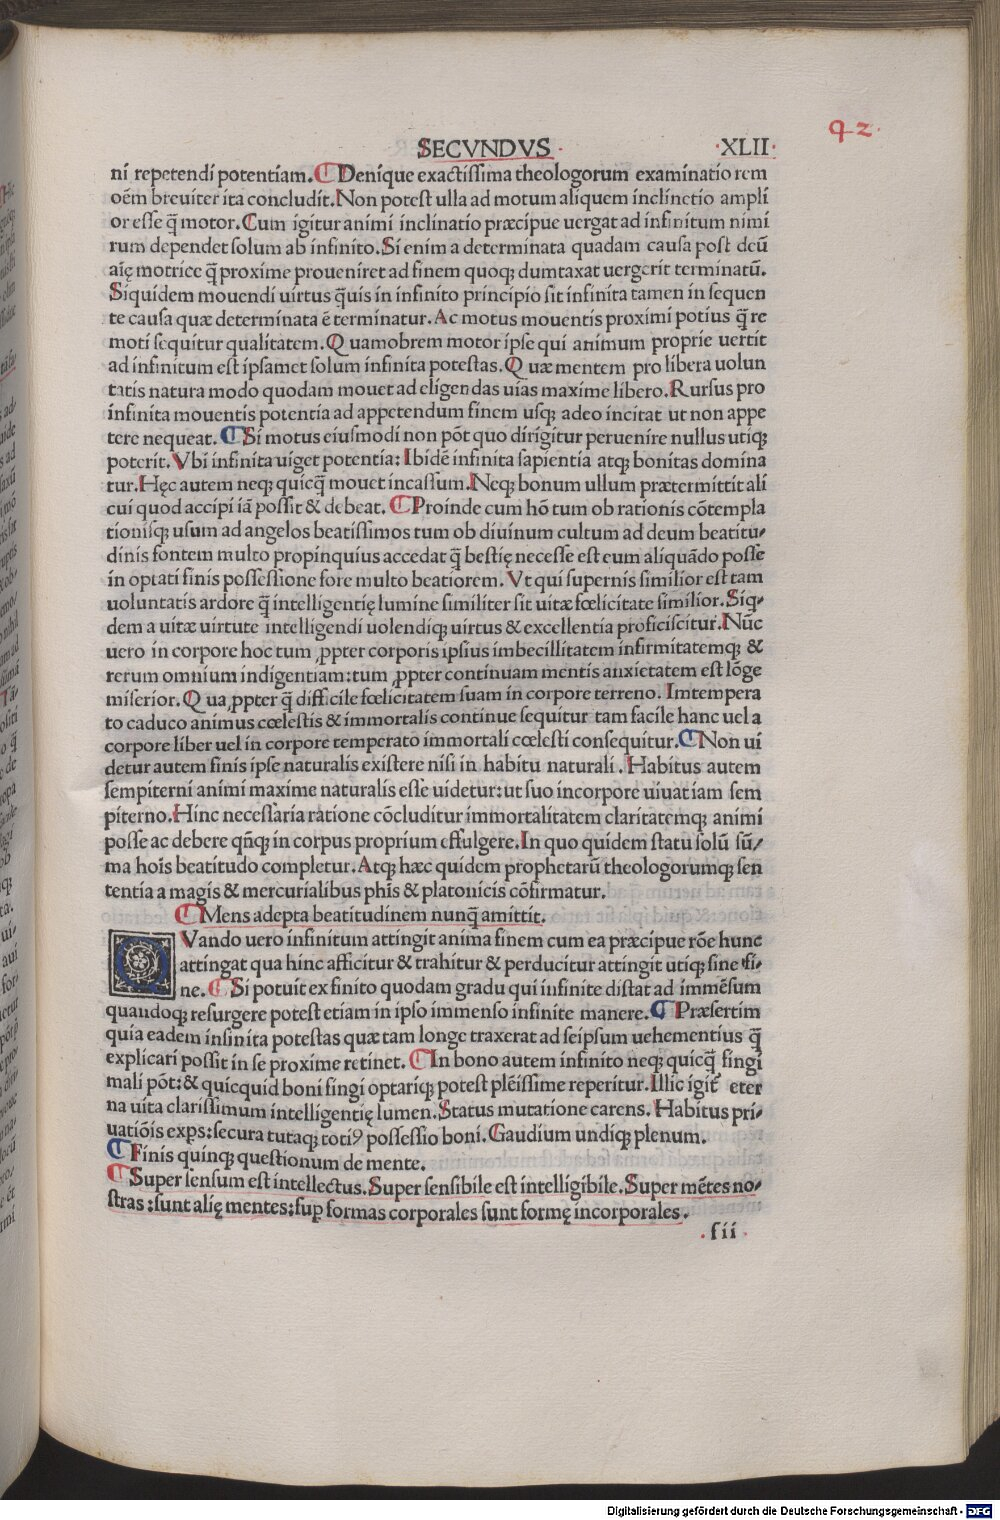 SECVNDVS
·XLII·
42·
ni repetendi potentiam. ¶ Denique exactissima theologorum examinatio rem
oẽm breuiter ita concludit. Non potest ulla ad motum aliquem inclinetio ampli
or esse q̃ motor. Cum igitur animi inclinatio præcipue uergat ad infinitum nimi
rum dependet solum ab infinito. Si enim a determinata quadam causa post deũ
aĩę motrice q̃ proxime proueniret ad finem quoqꝫ dumtaxat uergerit terminatũ.
Siquidem mouendi uirtus q̃uis in infinito principio sit infinita tamen in sequen
te causa quæ determinata ẽ terminatur. Ac motus mouentis proximi potius q̃ re
moti sequitur qualitatem. Quamobrem motor ipse qui animum proprie uertit
ad infinitum est ipsamet solum infinita potestas. Quæ mentem pro libera uolun
tatis natura modo quodam mouet ad eligendas uias maxime libero. Rursus pro
infinita mouentis potentia ad appetendum finem usqꝫ adeo incitat ut non appe
tere nequeat. ¶ Si motus eiusmodi non põt quo dirigitur peruenire nullus utiqꝫ
poterit. Vbi infinita uiget potentia: Ibidẽ infinita sapientia atqꝫ bonitas domina
tur. Hęc autem neqꝫ quicq̃ mouet incassum. Neqꝫ bonum ullum prætermittit ali
cui quod accipi iã possit & debeat. ¶ Proinde cum hõ tum ob rationis cõtempla
tionisqꝫ usum ad angelos beatissimos tum ob diuinum cultum ad deum beatitu-
dinis fontem multo propinquius accedat q̃ bestię necesse est eum aliquãdo posse
in optati finis possessione fore multo beatiorem. Vt qui supernis similior est tam
uoluntatis ardore q̃ intelligentię lumine similiter sit uitæ fœlicitate similior. Siq-
dem a uitæ uirtute intelligendi uolendiqꝫ uirtus & excellentia proficiscitur. Nũc
uero in corpore hoc tum ꝓpter corporis ipsius imbecillitatem infirmitatemqꝫ &
rerum omnium indigentiam: tum ꝓpter continuam mentis anxietatem est lõge
miserior. Qua ꝓpter q̃ difficile fœlicitatem suam in corpore terreno. Imtempera
to caduco animus cœlestis & immortalis continue sequitur tam facile hanc uel a
corpore liber uel in corpore temperato immortali cœlesti consequitur. ¶ Non ui
detur autem finis ipse naturalis existere nisi in habitu naturali. Habitus autem
sempiterni animi maxime naturalis esse uidetur: ut suo incorpore uiuat iam sem
piterno. Hinc necessaria ratione cõcluditur immortalitatem claritatemqꝫ animi
posse ac debere qñqꝫ in corpus proprium effulgere. In quo quidem statu solũ sũ-
ma hoĩs beatitudo completur. Atqꝫ hæc quidem prophetarũ theologorumqꝫ sen
tentia a magis & mercurialibus phĩs & platonicis cõfirmatur.
¶ Mens adepta beatitudinem nunq̃ amittit.
QVando uero infinitum attingit anima finem cum ea præcipue rõe hunc
attingat qua hinc afficitur & trahitur & perducitur attingit utiqꝫ sine fi-
ne. ¶ Si potuit ex finito quodam gradu qui infinite distat ad immẽsum
quandoqꝫ resurgere potest etiam in ipso immenso infinite manere. ¶ Præsertim
quia eadem infinita potestas quæ tam longe traxerat ad seipsum uehementius q̃
explicari possit in se proxime retinet. ¶ In bono autem infinito neqꝫ quicq̃ fingi
mali põt: & quicquid boni fingi optariqꝫ potest plẽissime reperitur. Illic igiť eter
na uita clarissimum intelligentię lumen. Status mutatione carens. Habitus pri-
uatiõis exꝑs: secura tutaqꝫ totiꝰ possessio boni. Gaudium undiqꝫ plenum.
¶ Finis quinqꝫ questionum de mente.
¶ Super sensum est intellectus. Super sensibile est intelligibile. Super mẽtes no-
stras: sunt alię mentes: suꝑ formas corporales sunt formę incorporales.
·fii·
Digitalisierung gefördert durch die Deutsche Forschungsgemeinschaft - DFG